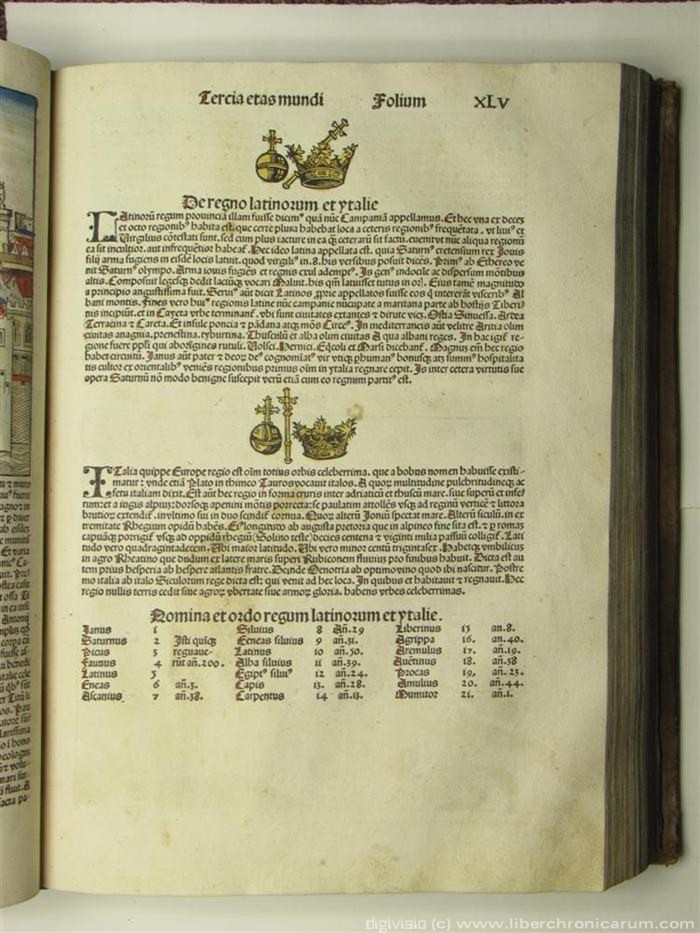 Tercia etas mundi Folium XLV
De regno latinorum et ytalie
LAtinorū regum prouincia illam fuisse dicim⁹ quā nūc Campaniā appellamus. Et hec vna ex decez
et octo regionib⁹ habita est. que certe plura habebat loca a ceteris regionib⁹ frequētata. vt liui⁹ ex
Virgilius cōtestati sunt. sed cum plus iacture in ea q̄ ceterarū sit factū. euenit vt nūc aliqua regionū
ea sit incultior. aut infrequētior habeat̄. Hec ideo latina appellata est. quia Saturn⁹ cretensium rex Jouis
filij arma fugiens in eisdē locis latuit. quod virgili⁹ in .8. his versibus posuit dicēs. Prim⁹ ab Ethereo ve
nit Saturn⁹ olympo. Arma iouis fugiēs et regnis exul adempt⁹. Is gen⁹ indocile ac dispersum mōtibus
altis. Composuit legesq̄ dedit laciūq̄ vocari Maluit. his qm̄ latuisset tutus in or̄. Eius tamē magnitudo
a principio angustissima fuit. Serui⁹ aūt dicit Latinos p̱rie appellatos fuisse eos q̄ intererāt viscerib⁹ Al
bani montis. Fines vero hui⁹ regionis latine nūc campanie nūcupate a maritana parte ab hostijs Tiberi
nis incipiūt. et in Cayeta vrbe terminant̄. vbi sunt ciuitates extantes et dirute vicz. Ostia Sinuessa. Ardea
Terracina et Caieta. Et insule poncia et pādana atq̄ mōs Circe⁹. In mediterraneis aūt velitre Aritia olim
ciuitas anagnia. prenestina. tyburtina. Thusculū et alba olim ciuitas A qua albani reges. In hac igit̄ re-
gione fuere pp̄li qui aborigines rutuli. Uolsci. Hernici. Eq̄coli et Marsi dicebant̄. Magnus em̄ hec regio
habet circuitū. Janus aūt pater et deor̄ de⁹ cognomiat⁹ vir vtiq̄ phuman⁹ bonusq̄ atq̄ summ⁹ hospitalita
tis cultor ex orientalib⁹ veniēs regionibus primus oīm in ytalia regnare cepit. Is inter cetera virtutis sue
opera Saturnū nō modo benigne suscepit verū etiā cum eo regnum partit⁹ est.
ITalia quippe Europe regio est oīm totius orbis celeberrima. que a bobus nomen habuisse existi-
matur: vnde etiā Plato in thimeo Tauros vocauit italos. A quorz multitudine pulchritudineq̄ ac
fetu italiam dixit. Est aūt hec regio in forma cruris inter adriaticū et thuscū mare. siue superū et infe-
rum: et a iugis alpiuz: dorsoq̄ apenini mōtis porrecta: se paulatim attollēs vsq̄ ad reginū verticē ⁊ littora
brutior̄ extendit̄. in vltimo sui in duo scendit̄ cornua. Quor̄ alterū Joniū spectat mare. Alterū siculū. in ex
tremitate Rhegium opidū habēs. Eꝰ longitudo ab augusta pretoria que in alpineo fine sita est. ⁊ p romaz
capuāq̄ porrigit̄ vsq̄ ad oppidū rhegiū (Solino teste) decies centena ⁊ viginti milia passuū colligit̄. Lati
tudo vero quadragintadecem. Ubi maior latitudo. Ubi vero minor centū trigintasex. Habetq̄ vmbilicuz
in agro Rheatino que dudum ex latere maris superi Rubiconem fluuiuz pro finibus habuit. Dicta est au
tem prius hesperia ab hespere atlantis fratre. Deinde Oenotria ab optimo vino quod ibi nascitur. Postre
mo italia ab italo Siculorum rege dicta est: qui venit ad hec loca. In quibus et habitauit ⁊ regnauit. Hec
regio nullis terris cedit siue agror̄ vbertate siue armor̄ gloria. habens vrbes celeberrimas.
Nomina et ordo regum latinorum et ytalie.
Janus 1 Siluius 8 Añ. 29 Liberinus 15 an. 8.
Saturnus 2 Isti quīq̄ Eeneas siluius 9 añ. 31. Agrippa 16 an. 40.
Picus 3 regnaue- Latinus 10 añ. 50. Aremulus 17. añ. 19.
Faunus 4 rūt añ. 200. Alba siluius 11 añ. 39. Auētinus 18. añ. 38
Latinus 5 Egipt⁹ silui⁹ 12 añ. 24. Procas 19, añ. 23.
Eneas 6 añ. 3. Capis 13. añ. 28. Amulius 20. añ. 44.
Ascanius 7 añ. 38. Carpentus 14 añ. 13. Numitor 21. añ. 1.
digivisio (c) www.liberchronicarum.com